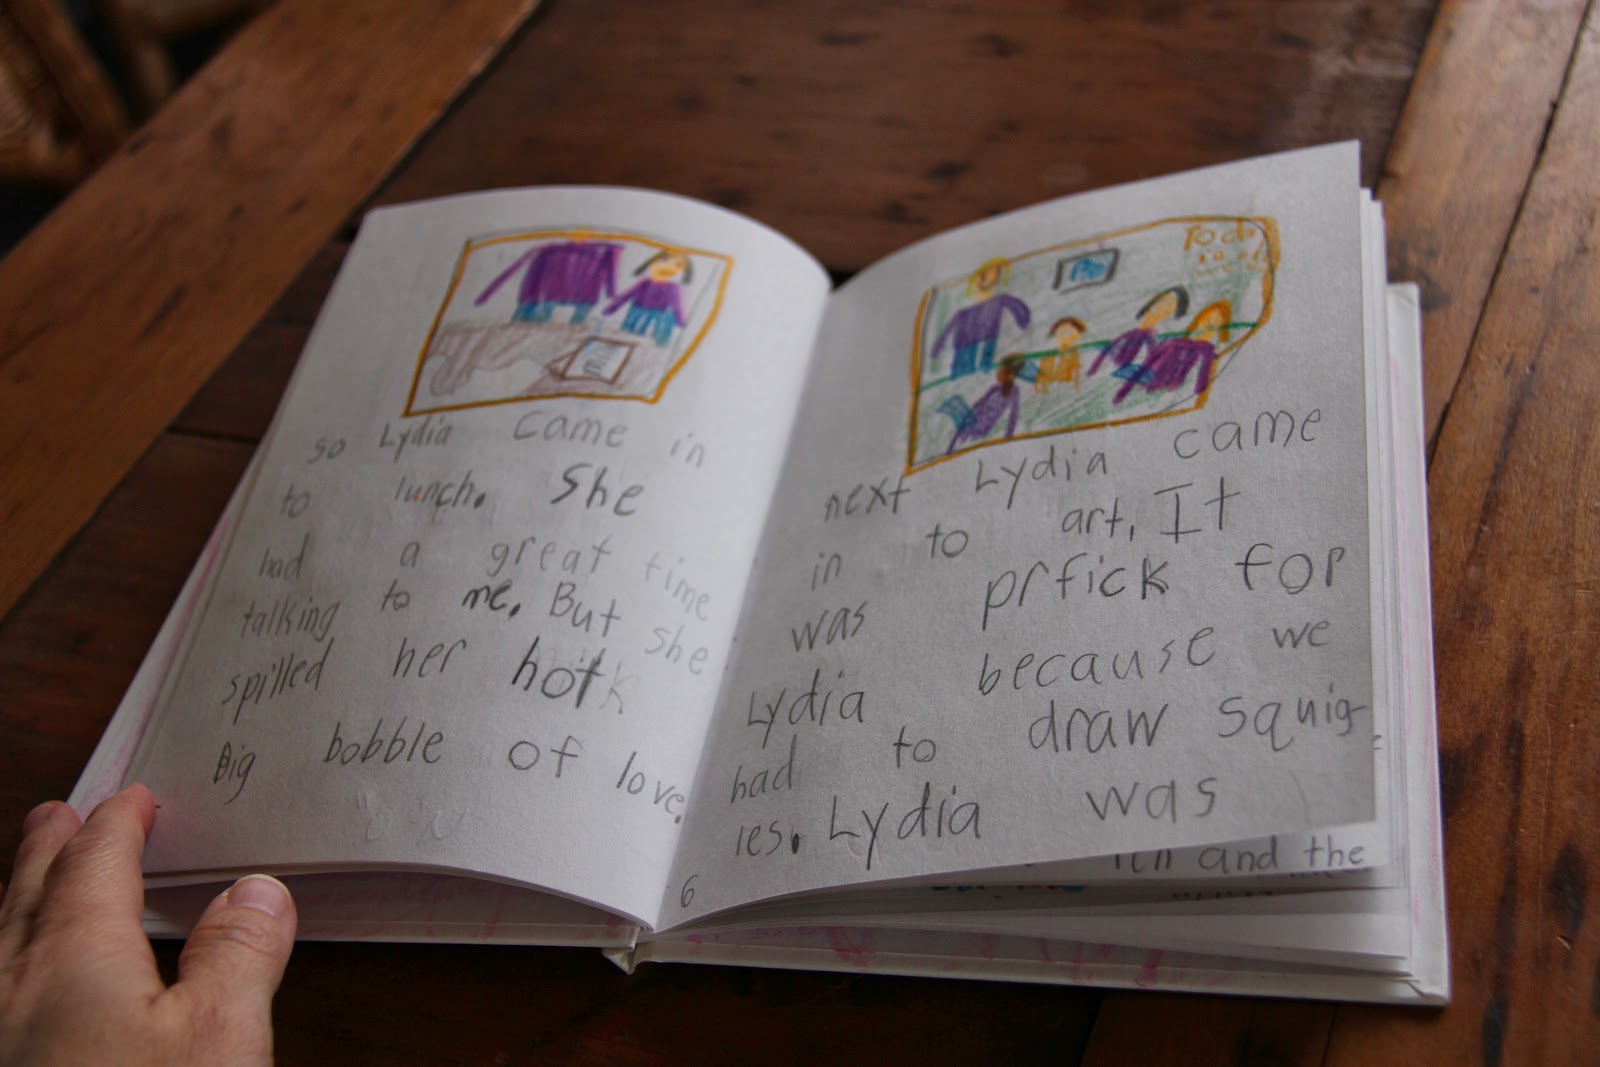 so Lydia came in
to lunch. She
had a great time
talking to me. But she
spilled her hot
Big bobble of love.
next Lydia came
in to art. It
was prfick for
Lydia because we
had to draw squig-
les. Lydia was
6
and the